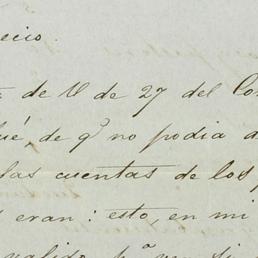 ecio.
de U de 27 del Co
ué, de q.º no podia a
las cuentas de los
eran: esto, en mi
valido p.ª